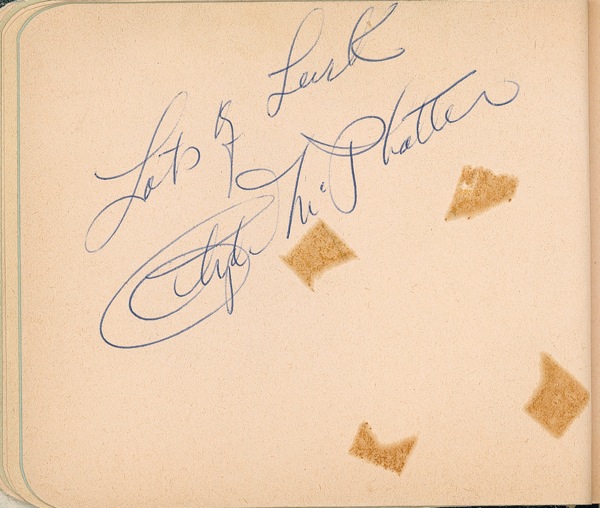 Lots of Luck
Clyde McPhatter